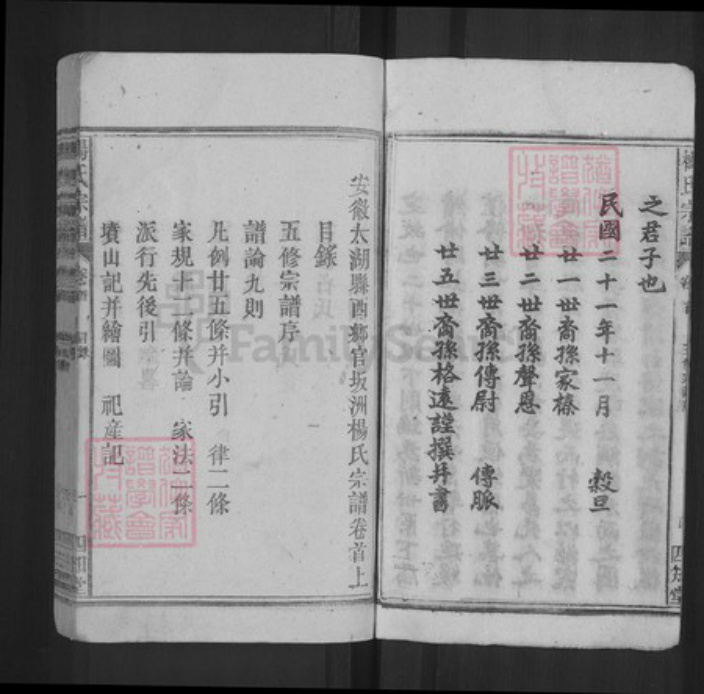 之君子也
民國二十一年十一月 穀旦
廿一世裔孫家榛
廿二世裔孫聲恩
廿三世裔孫傳尉 傳脈
廿五世裔孫格遠謹撰并書
楊氏宗譜
四知堂
安徽太湖縣西鄉官坂洲楊氏宗譜卷首上
目錄
五修宗譜序
譜論九則
凡例廿五條并小引 律二條
家規十二條并論 家法二條
派行先後引
墳山記并繪圖 祀産記
楊氏宗譜 卷首 目錄 一 四知堂
FamilySearch